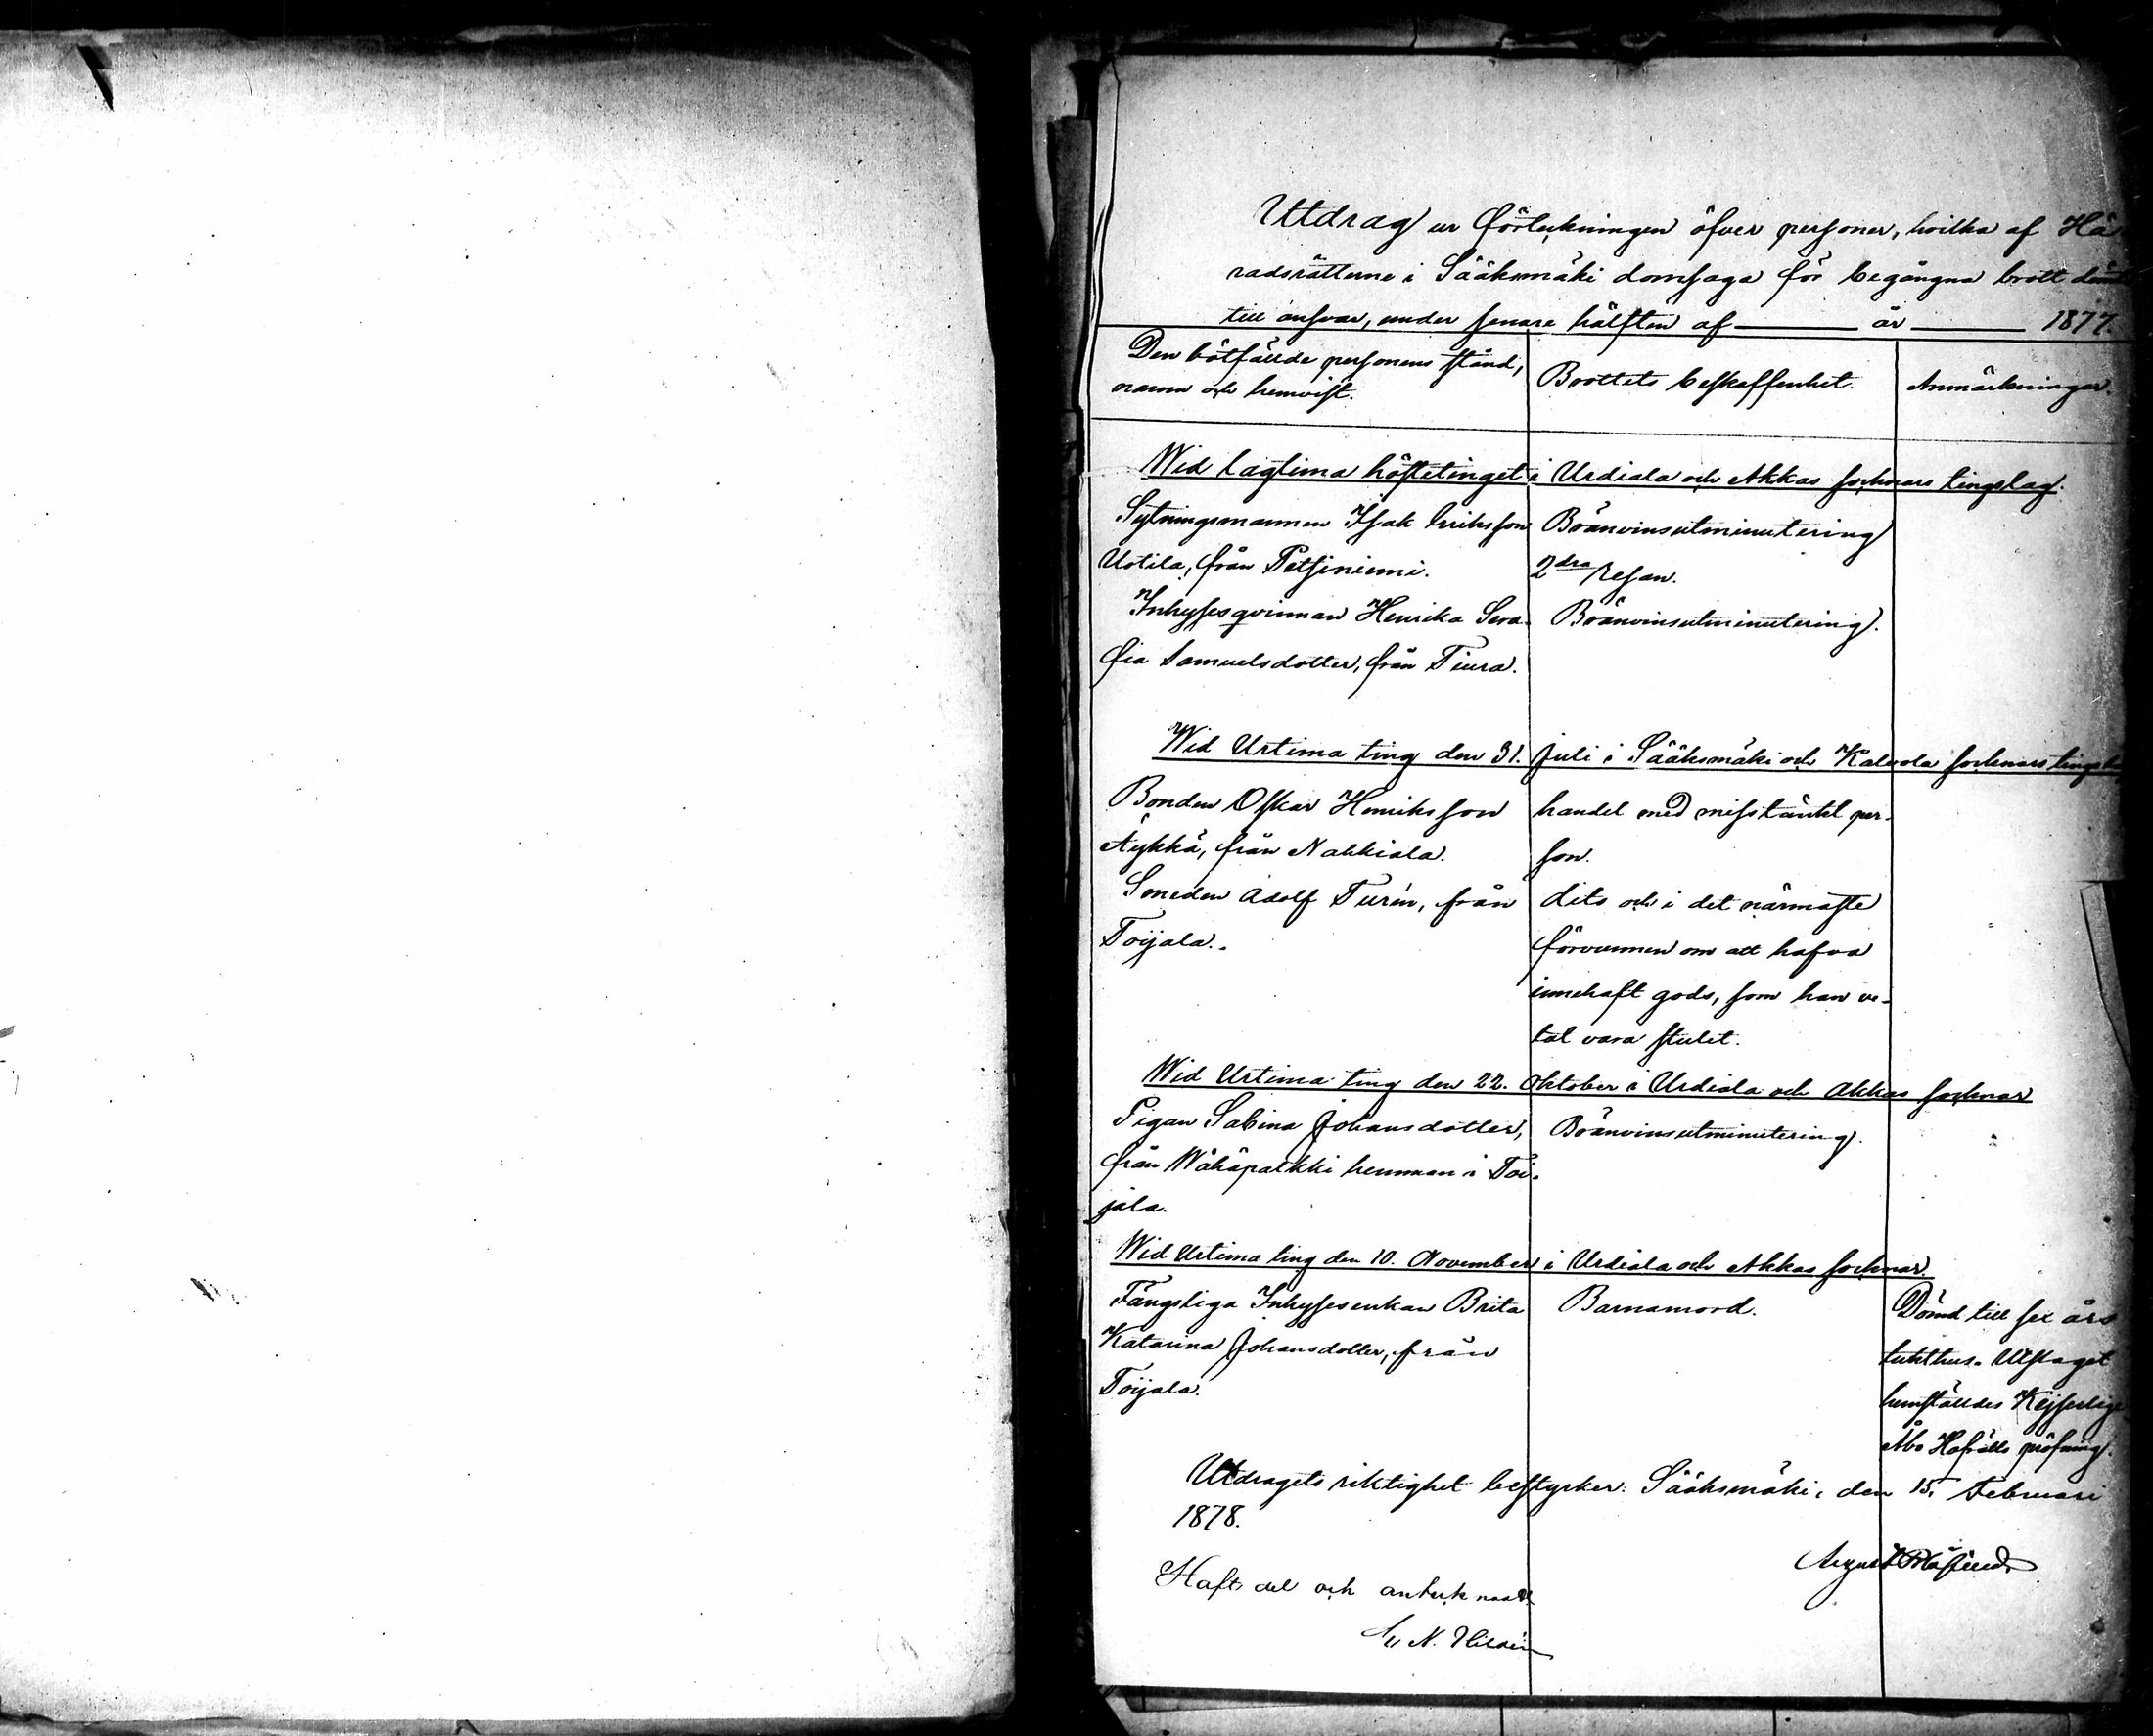 Utdrag ur förteckningen öfver personer, hvilka af Hä-
radsrätterne i Sääksmäki domsaga för begångna brott dömts
till ansvar, under senare hälften af år 1877.
Den bötfällde personens stånd, namn och hemvist. Brottets beskaffenhet. Anmärkningar.
Wid lagtima höstetinget i Urdiala och Akkas socknars tingslag.
Sytningsmannen Isak Eriksson Brännvinsutminutering
Uotila, från Petsiniemi. 2dra resan.
Inhysesqvinnan Henrika Sera- Brännvinsutminutering.
fia Samuelsdotter, från Tiura.
Wid Urtima ting den 31. Juli i Sääksmäki och Kalvola socknars tingsl
Bonden Oskar Henriksson handel med misstänkt per-
Äykkä, från Nakkiala. son.
Smeden Adolf Turén, från dito och i det närmaste
Toijala. förvunnen om att hafva
innehaft gods, som han ve-
tat vara stulet.
Wid Urtima ting den 22. Oktober i Urdiala och Akkas socknar
Pigan Sabina Johansdotter, Brännvinsutminutering.
från Wähäpatkki hemman i Toi-
jala.
Wid Urtima ting den 10. November i Urdiala och Akkas socknar.
Fängsliga Inhysesenkan Brita Barnamord. Dömd till sex års
Katarina Johansdotter, från tukthus. Utslaget
Toijala. hemställdes Kejserlige
Åbo Hofrätts pröfning.
Utdragets riktighet bestyrker: Sääksmäki, den 15. Februari
1878.
August
Haft del och antecknadt
N. Hildén